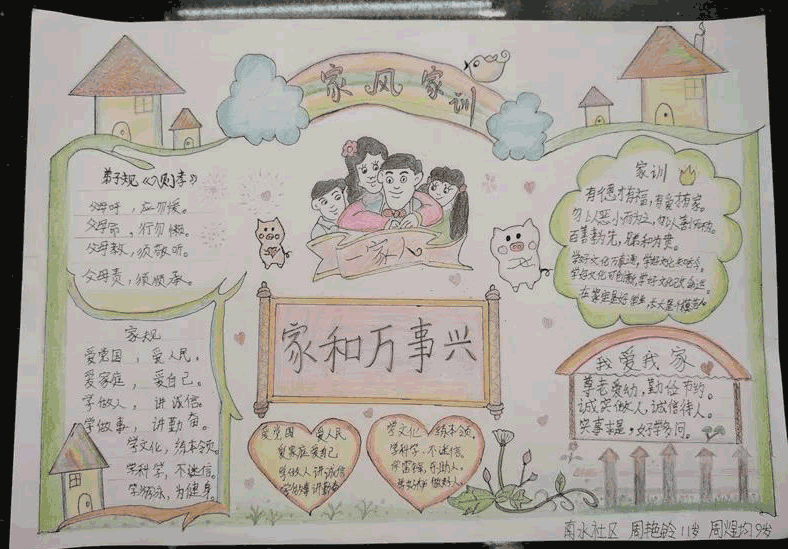 家风家训
弟子规《入则孝》
父母呼，应勿缓。
父母命，行勿懒。
父母教，须敬听。
父母责，须顺承。
一家人
家训
有德才有福，有爱才有家。
勿以恶小而为之，勿以善小而不为。
百善孝为先，
家和万事兴
家规
爱党国，爱人民。
爱家庭，爱自己。
学做人，讲诚信。
学做事，讲勤奋。
学文化，练本领。
学科学，不迷信。
学游泳，为健身。
爱党国 爱人民
爱家庭 爱自己
学做人 讲诚信
学做事 讲勤奋
学文化 练本领。
学科学，不迷信。
学雷锋，
做好人。
我爱我家
尊老爱幼，勤俭节约。
诚实做人，诚信待人。
实事求是，好学多问。
南水社区 周艳龄 11岁 周煜均 9岁